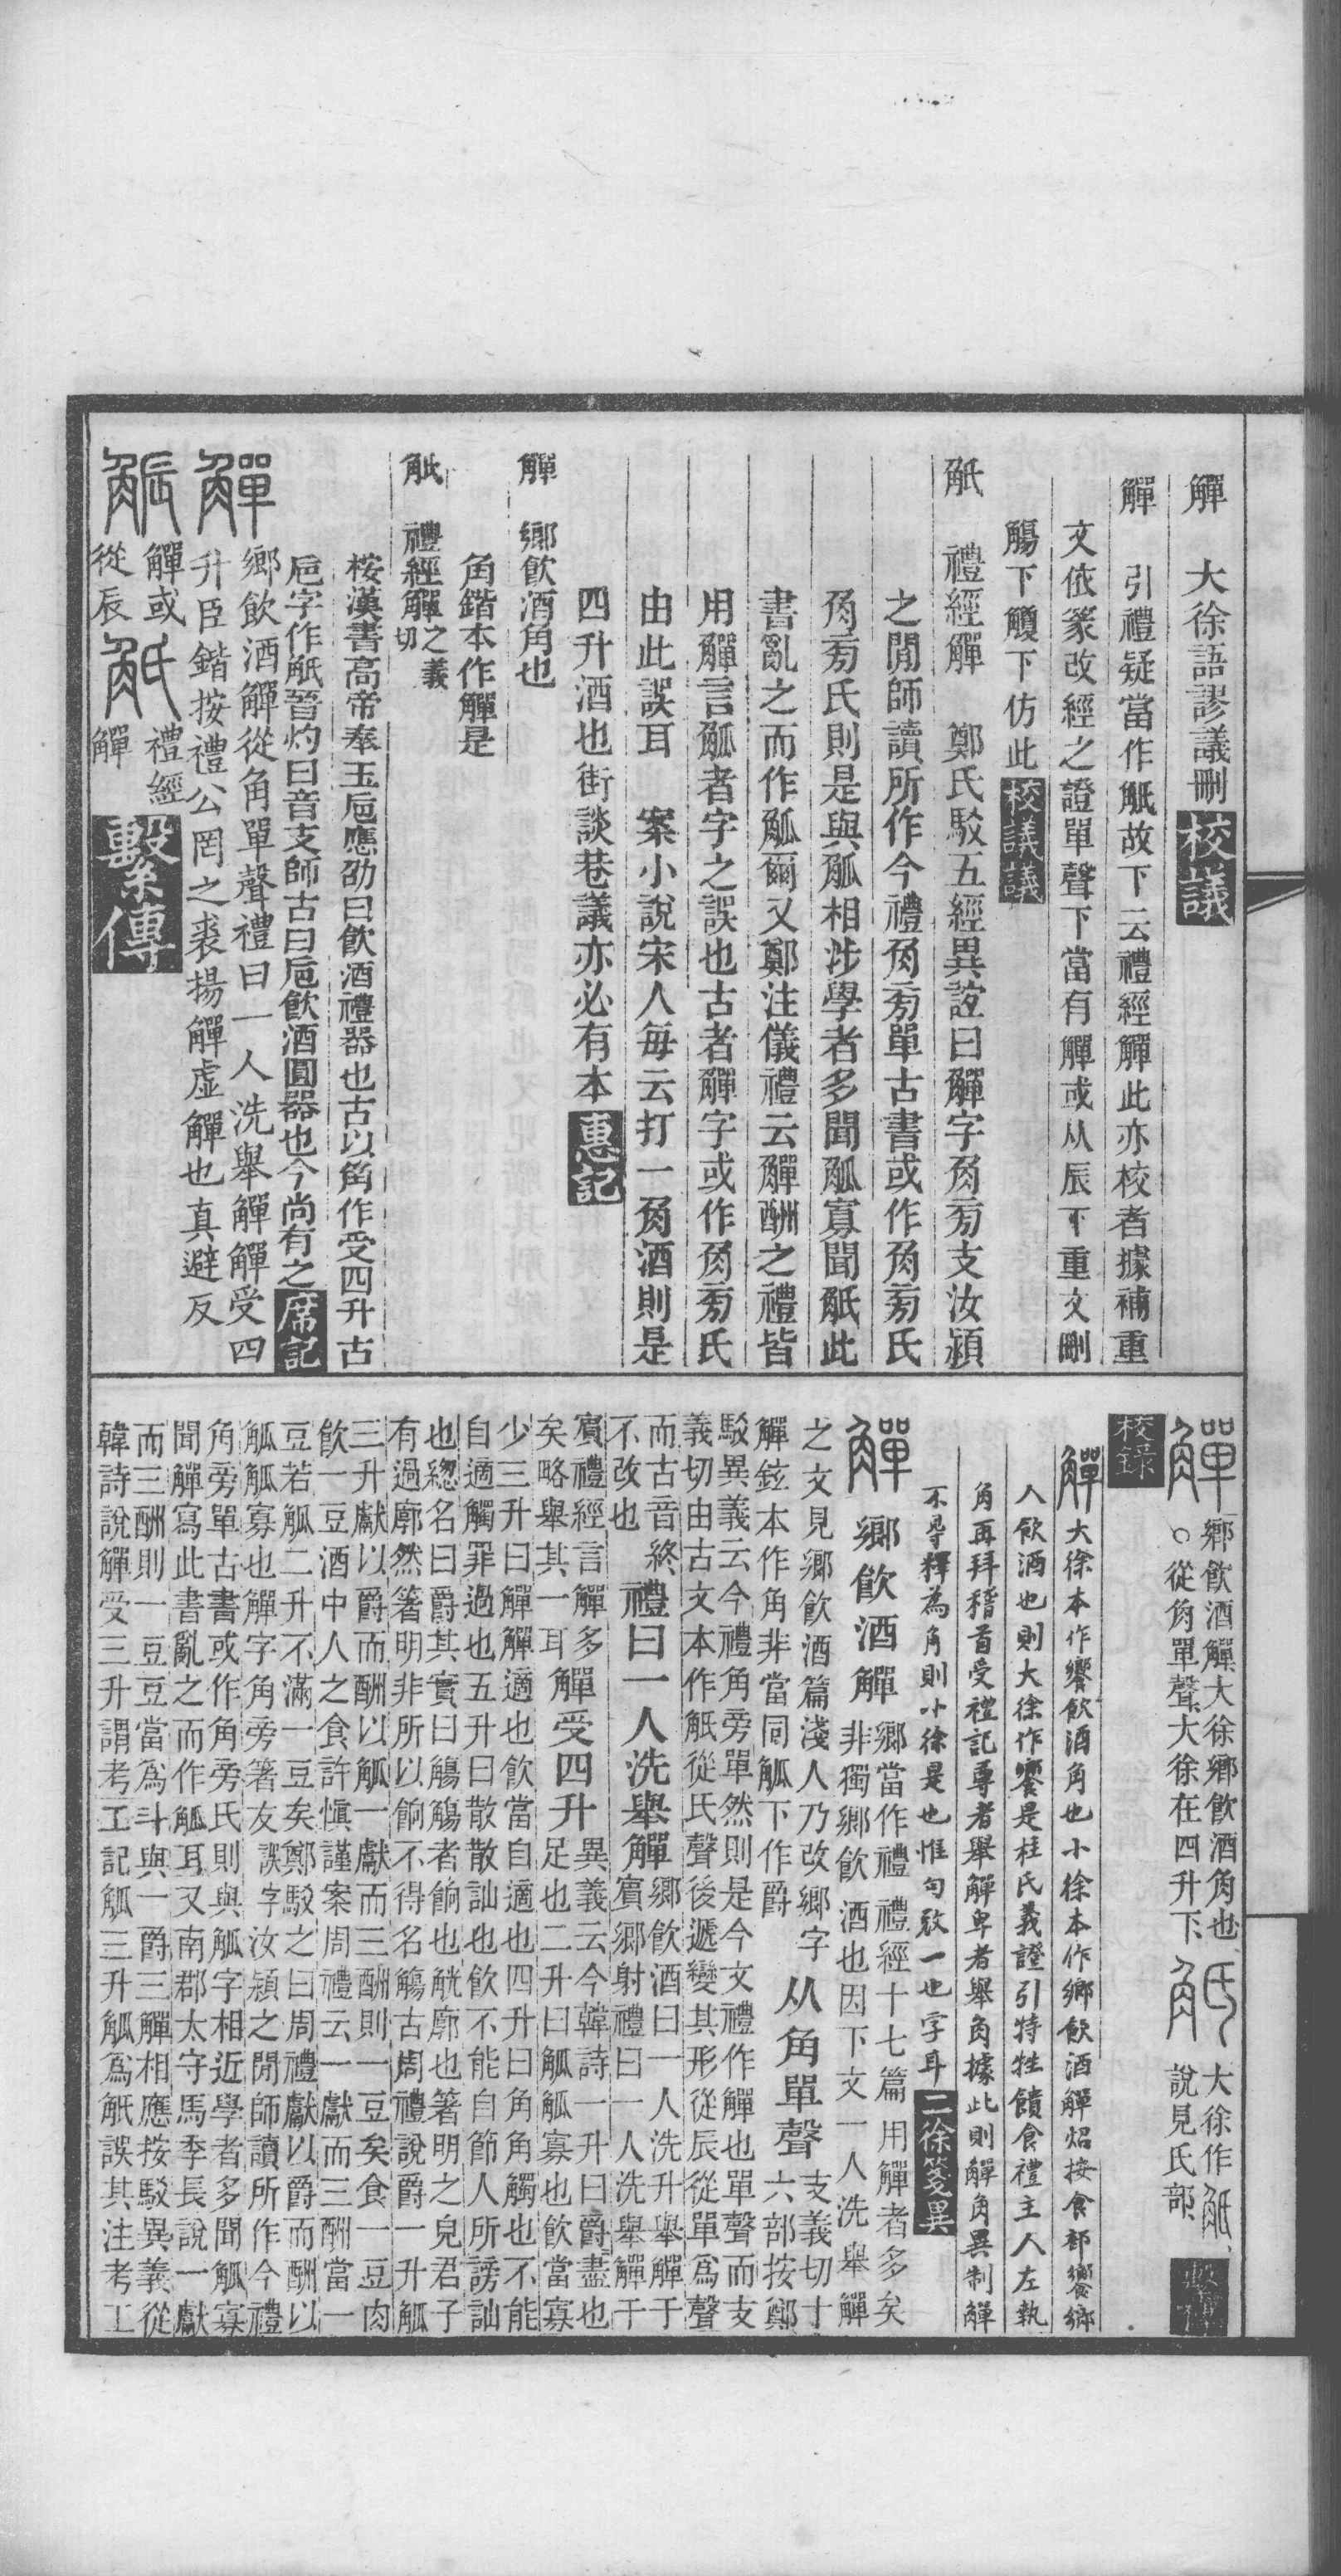 觶　大徐語謬議刪校議
觶　引禮疑當作觗故下云禮經觶此亦校者據補重
文依篆改經之證單聲下當有觶或从辰不重文刪
觴下觼下仿此校議議
觗　禮經觶　鄭氏駁五經異誼曰觶字角旁支汝潁
之閒師讀所作今禮角旁單古書或作角旁氏
角旁氏則是與觚相涉學者多聞觚寡聞觗此
書亂之而作觚爾又鄭注儀禮云觶酬之禮皆
用觶言觚者字之誤也古者觶字或作角旁氏
由此誤耳　案小說宋人每云打一角酒則是
四升酒也街談巷議亦必有本惠記
觶　鄉飲酒角也
角鍇本作觶是
觗　禮經觶之義切
桉漢書高帝奉玉卮應劭曰飲酒禮器也古以角作受四升古
卮字作觗晉灼曰音支師古曰卮飲酒圓器也今尚有之席記
觶鄉飲酒觶從角單聲禮曰一人洗舉觶觶受四
升臣鍇按禮公罔之裘揚觶虛觶也真避反
䚨觶或從辰觗禮經觶繫傳
觶鄉飲酒觶大徐鄉飲酒角也○從角單聲大徐在四升下觗大徐作觗說見氏部
校錄
觶大徐本作饗飲酒角也小徐本作鄉飲酒觶炤按食部饗鄉
人飲酒也則大徐作饗是桂氏義證引特牲饋食禮主人左執
角再拜稽首受禮記尊者舉觶卑者舉角據此則觶角異制觶
不得釋為角則小徐是也惟句致一也字耳二徐箋異
觶鄉飲酒觶鄉當作禮禮經十七篇用觶者多矣非獨鄉飲酒也因下文一人洗舉觶
之文見鄉飲酒篇淺人乃改鄉字觶鉉本作角非當同觚下作爵从角單聲支義切十六部按鄭
駁異義云今禮角旁單然則是今文禮作觶也單聲而支
義切由古文本作觗從氏聲後遞變其形從辰從單爲聲
而古音終不改也禮曰一人洗舉觶鄉飲酒曰一人洗升舉觶于賓鄉射禮曰一人洗舉觶于
賓禮經言觶多矣略舉其一耳觶受四升異義云今韓詩一升曰爵爵盡也足也二升曰觚觚寡也飲當寡
少三升曰觶觶適也飲當自適也四升曰角角觸也不能
自適觸罪過也五升曰散散訕也飲不能自節人所謗訕
也總名曰爵其實曰觴觴者餉也觥廓也箸明之皃君子
有過廓然箸明非所以餉不得名觴古周禮說爵一升觚
三升獻以爵而酬以觚一獻而三酬則一豆矣食一豆肉
飲一豆酒中人之食許慎謹案周禮云一獻而三酬當一
豆若觚二升不滿一豆矣鄭駁之曰周禮獻以爵而酬以
觚觚寡也觶字角旁箸友誤字汝潁之閒師讀所作今禮
角旁單古書或作角旁氏則與觚字相近學者多聞觚寡
聞觶寫此書亂之而作觚耳又南郡太守馬季長說一獻
而三酬則一豆豆當爲斗與一爵三觶相應按駁異義從
韓詩說觶受三升謂考工記觚三升觚爲觗誤其注考工